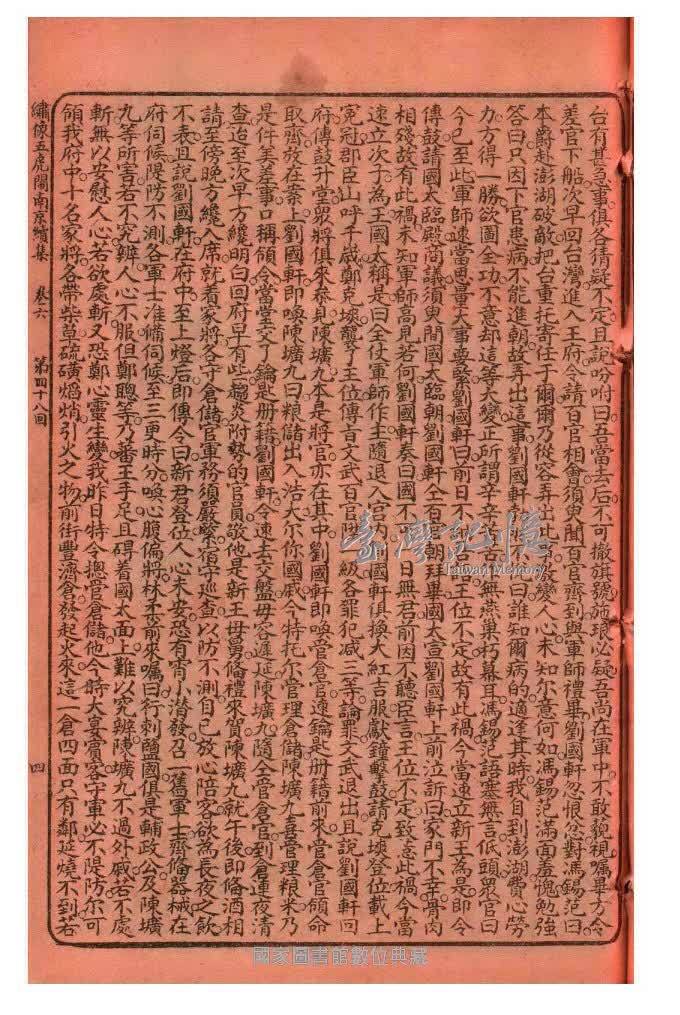 台有甚急事俱各猜疑不定且說吩咐曰吾當去后不可撤旗號施琅必疑吾尚在軍中不敢藐視嘱畢方令
差官下船次早回台灣進入王府令請百官相會須臾聞百官齊到與軍師禮畢劉國軒忿恨忿對馬錫范曰
本爵赴澎湖破敵把台重托寄任于爾爾乃從容弄出此 變人心未知尔意何如馮錫范滿面羞愧勉強
答曰只因下官患病不能進朝故弄出這事劉國軒 曰誰知爾病的適逢其時我自到澎湖費心勞
力方得一勝欲圖全功不意却這等大變正所謂辛辛 無燕巢朽幕耳馮錫范語塞無言低頭眾官曰
今已至此軍師速當思量大事要緊劉國軒曰前日不 王位不定故有此禍今當速立新王為是即令
傳鼓請國太臨殿商議須臾間國太臨朝劉國軒仝百 朝拜畢國太宣劉國軒上前泣訴曰家門不幸骨肉
相殘故有此禍未知軍師高見若何劉國軒奏曰國不可一日無君前因不聽臣言王位不定致惹此禍今當
速立次子為王國太稱是曰全仗軍師作主隨退入宮內 國軒俱換大紅吉服獻鐘擊鼓請克塽登位載上
冕冠郡臣山呼千歲鄭克塽襲了王位傳旨文武百官陞 級各罪犯减三等論罪文武退出且說劉國軒回
府傳鼓升堂眾將俱來恭見陳壙九本是將官亦在其中劉國軒即喚管倉官速鑰匙册籍前來管倉官領命
取齊放在案上劉國軒即喚陳壙九曰粮儲出入浩大尔你國戚今特托尔管理倉儲陳壙九喜管理粮米乃
是件美差事口稱領令當堂交了鑰匙册籍劉國軒令速去交盤毋容遲延陳壙九隨仝管倉官到倉連夜清
查迨至次早方纔明白回府早有些趨炎附勢的官員敬他是新王母舅俻禮來賀陳壙九就午後即俻酒相
請至傍晚方纔入席就着家將各守倉儲官軍務須嚴緊宿守巡查以防不測自己放心陪客欲為長夜之飲
不表且說劉國軒在府中至上燈后即傳令曰新君登位人心未安恐有宵小潜發召 舊軍士齊俻器械在
府伺候隄防不測各軍士准俻伺候至三更時分喚心腹偏將林 前來嘱曰行刺監國俱是輔政公及陳壙
九等所害若不究辨人心不服但鄭聰等乃蕃王手足且碍着國太面上難以究辨陳壙九不過外戚若不處
斬無以安慰人心若欲處斬又恐鄭心靈生變我昨日特令摠管倉儲他今時大宴賓客守軍必不隄防尔可
領我府中十名家將各帶柴草硫磺焰焇引火之物前街豐濟倉發起火來這一倉四面只有鄰延燒不到若
繡像五虎鬧南京續集 卷六 第四十八回 四
臺灣記憶
Taiwan Memory
國家圖書館數位典藏